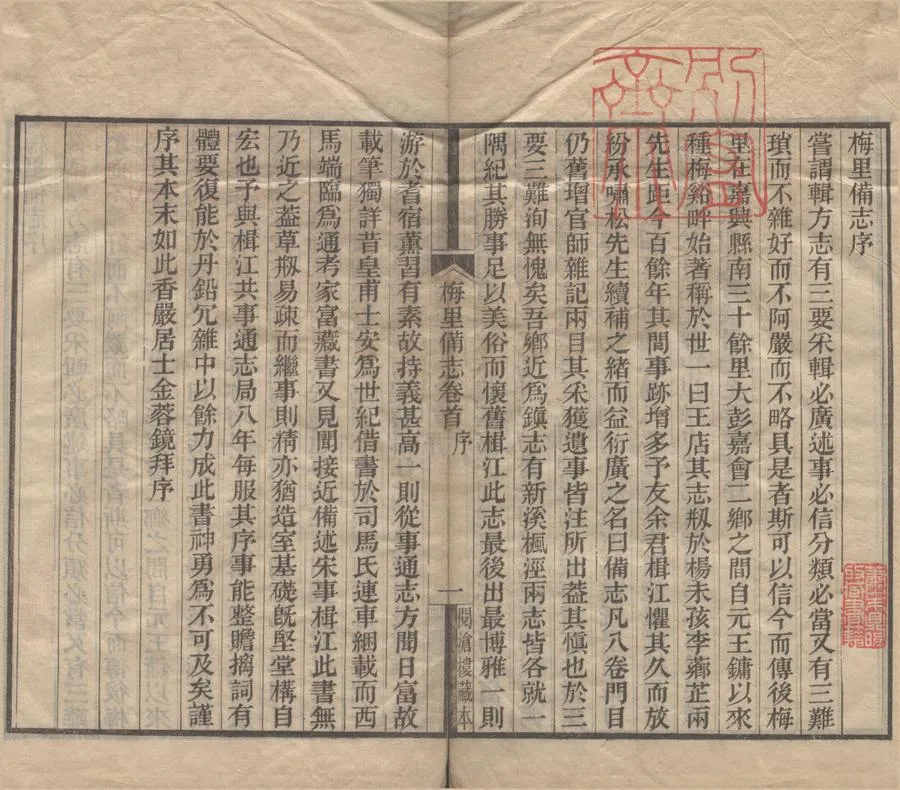 梅里備志序
嘗謂輯方志有三要采輯必廣述事必信分類必當又有三難
瑣而不雜好而不阿嚴而不略具是者斯可以信今而傳後梅
里在嘉興縣南三十餘里大彭嘉會二鄉之間自元王鏞以來
種梅谿畔始著稱於世一曰王店其志剏於楊未孩李薌芷兩
先生距今百餘年其間事跡增多予友余君楫江懼其久而放
紛承嘯松先生續補之緒而益衍廣之名曰備志凡八卷門目
仍舊增官師雜記兩目其采獲遺事皆注所出葢其愼也於三
要三難洵無愧矣吾鄉近爲鎭志有新溪楓涇兩志皆各就一
隅紀其勝事足以美俗而懷舊楫江此志最後出最博雅一則
梅里備志卷首
序
一
閱滄樓藏本
游於耆宿薰習有素故持義甚高一則從事通志方聞日富故
載筆獨詳昔皇甫士安爲世紀借書於司馬氏連車綑載而西
馬端臨爲通考家富藏書又見聞接近備述宋事楫江此書無
乃近之葢草剏易疏而繼事則精亦猶造室基礎旣堅堂構自
宏也予與楫江共事通志局八年每服其序事能整贍摛詞有
體要復能於丹鉛冗雜中以餘力成此書神勇爲不可及矣謹
序其本末如此香嚴居士金蓉鏡拜序